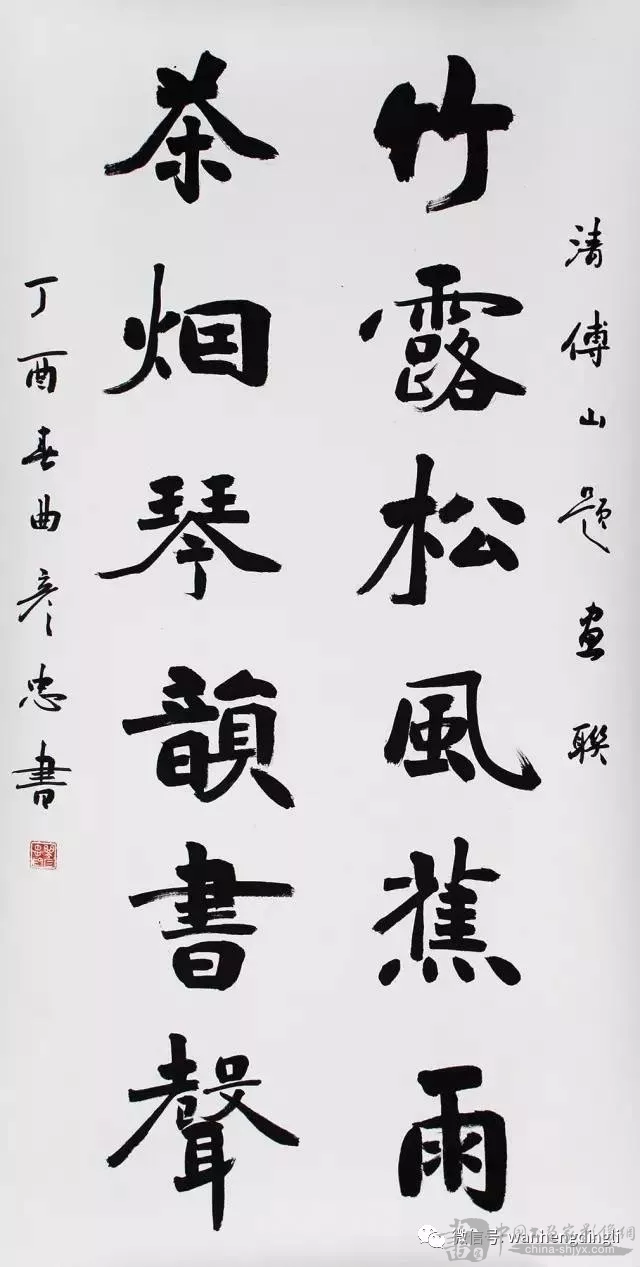 清傅山题画联
竹露松風蕉雨
茶烟琴韻書聲
丁酉春曲彦忠書
微信号: wanhengdingli
china-shjyx.com